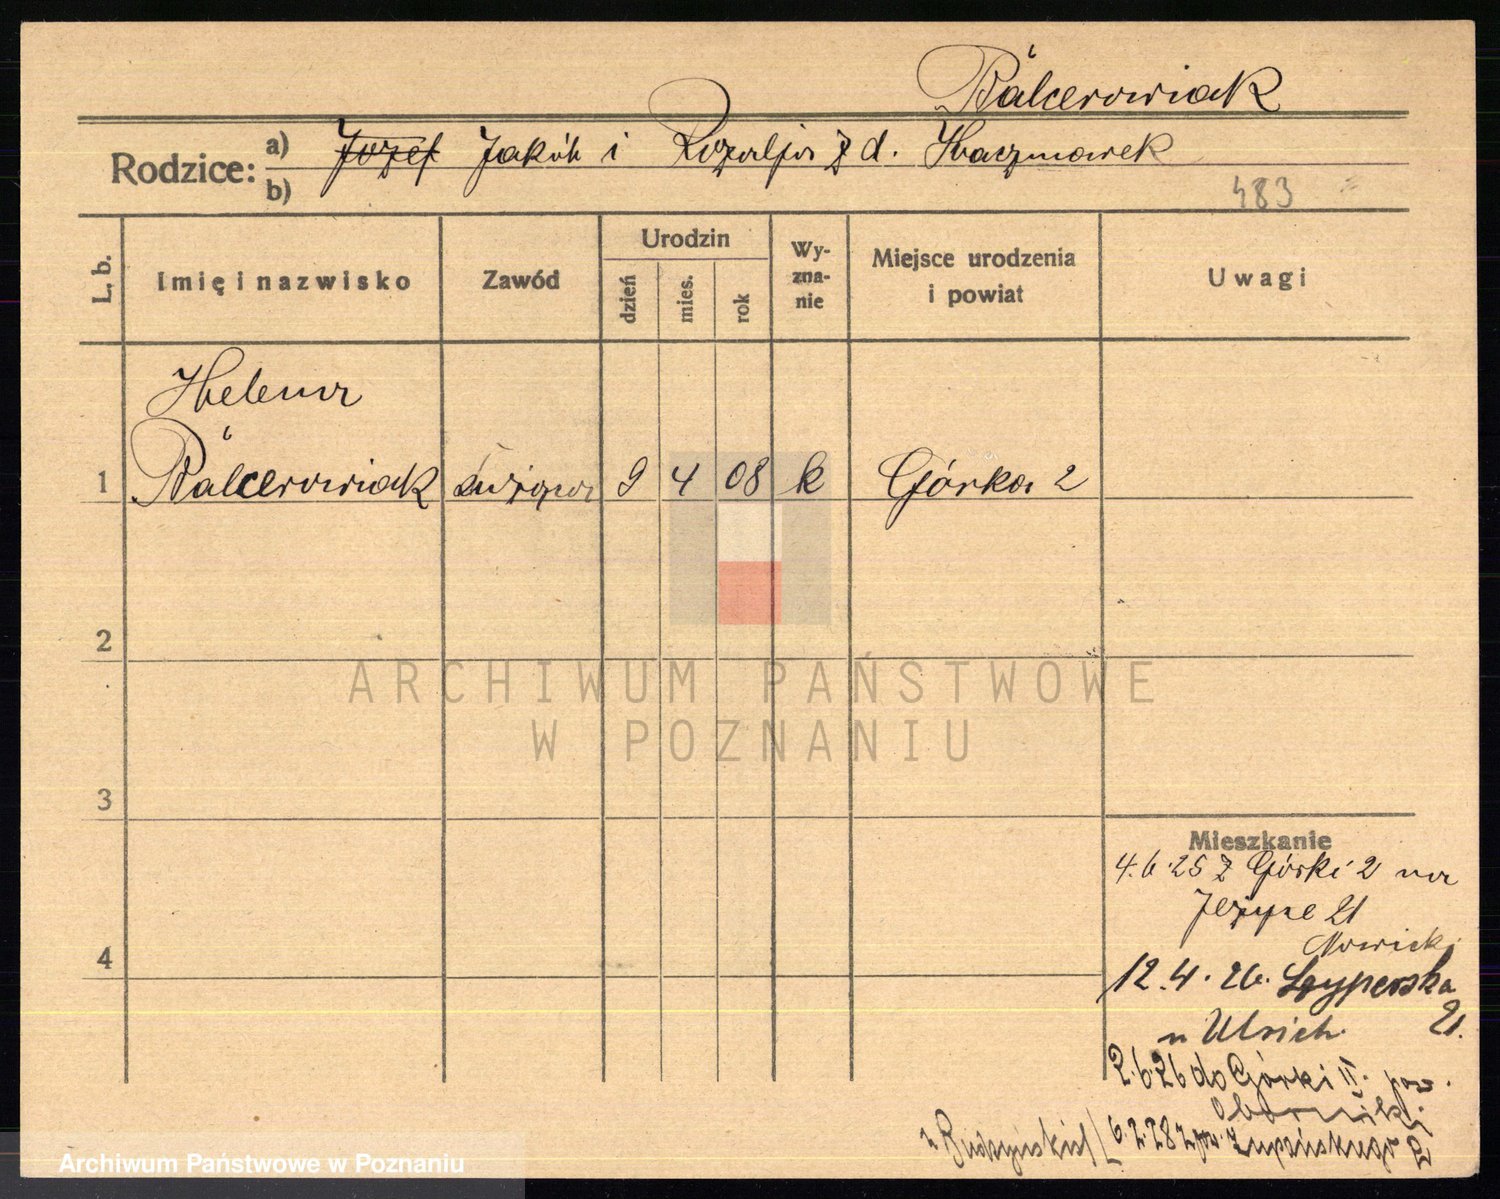 Bálcerowiak
Rodzice: a) Józef Jakób i Rozalja z d. Kaczmarek
b)
483
L. b. Imię i nazwisko Zawód Urodzin dzień mies. rok Wy-zna-nie Miejsce urodzenia i powiat Uwagi
Helena
1 Bálcerowiak służąca 9 4 08 k Górka 2
2
ARCHIWUM PAŃSTWOWE
W POZNANIU
3
Mieszkanie
4.6.25 z Górki 2 na
Jeżyce 21
Nowicki
4
12.4.26. 21.
u Ulrich.
2.6.26 do Górki II. pow.
Oborniki
u Budzyńskich 6.2.28 Żupańskiego
Archiwum Państwowe w Poznaniu